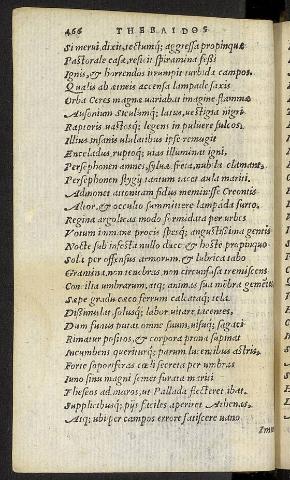 466 THEBAIDOS
Si merui dixit, tectumq; aggressa propinquæ
Pastorale casæ, reficit spiramina fessi
Ignis, & horrendos irrumpit turbida campos.
Qualis ab ætneis accensa lampade saxis
Orba Ceres magnæ variabat imagine flammæ
Ausonium Siculumq; latus, vestigia nigri
Raptoris vastosq; legens in puluere sulcos,
Illius insanis ululatibus ipse remugit
Enceladus, ruptoq; uias illuminat igni,
Persephonen amnes, syluæ, freta, nubila clamant,
Persephonen stygij tantum tacet aula mariti.
Admonet attonitam fidus meminisse Creontis
Altor, & occulto summittere lampada furto.
Regina argolicas modo formidata per urbes
Votum immane procis spesq; augustissima gentis
Nocte sub infesta nullo duce & hoste propinquo
Sola per offensus armorum, & lubrica tabo
Gramina, non tenebras, non circunfusa tremiscens
Concilia umbrarum, atq; animas sua membra gementes
Sæpe gradu cæco ferrum calcataq; tela
Dissimulat, solusq; labor uitare iacentes,
Dum funus putat omne suum, uisuq; sagaci
Rimatur positos, & corpora prona supinat
Incumbens queriturq; parum lucentibus astris.
Forte soporiferas cæli secreta per umbras
Iuno sinu magni semet furata mariti
Theseos ad muros, ut Pallada flecteret ibat
Supplicibusq; pijs faciles aperiret Athenas.
Atq; ubi per campos errore fatiscere uano